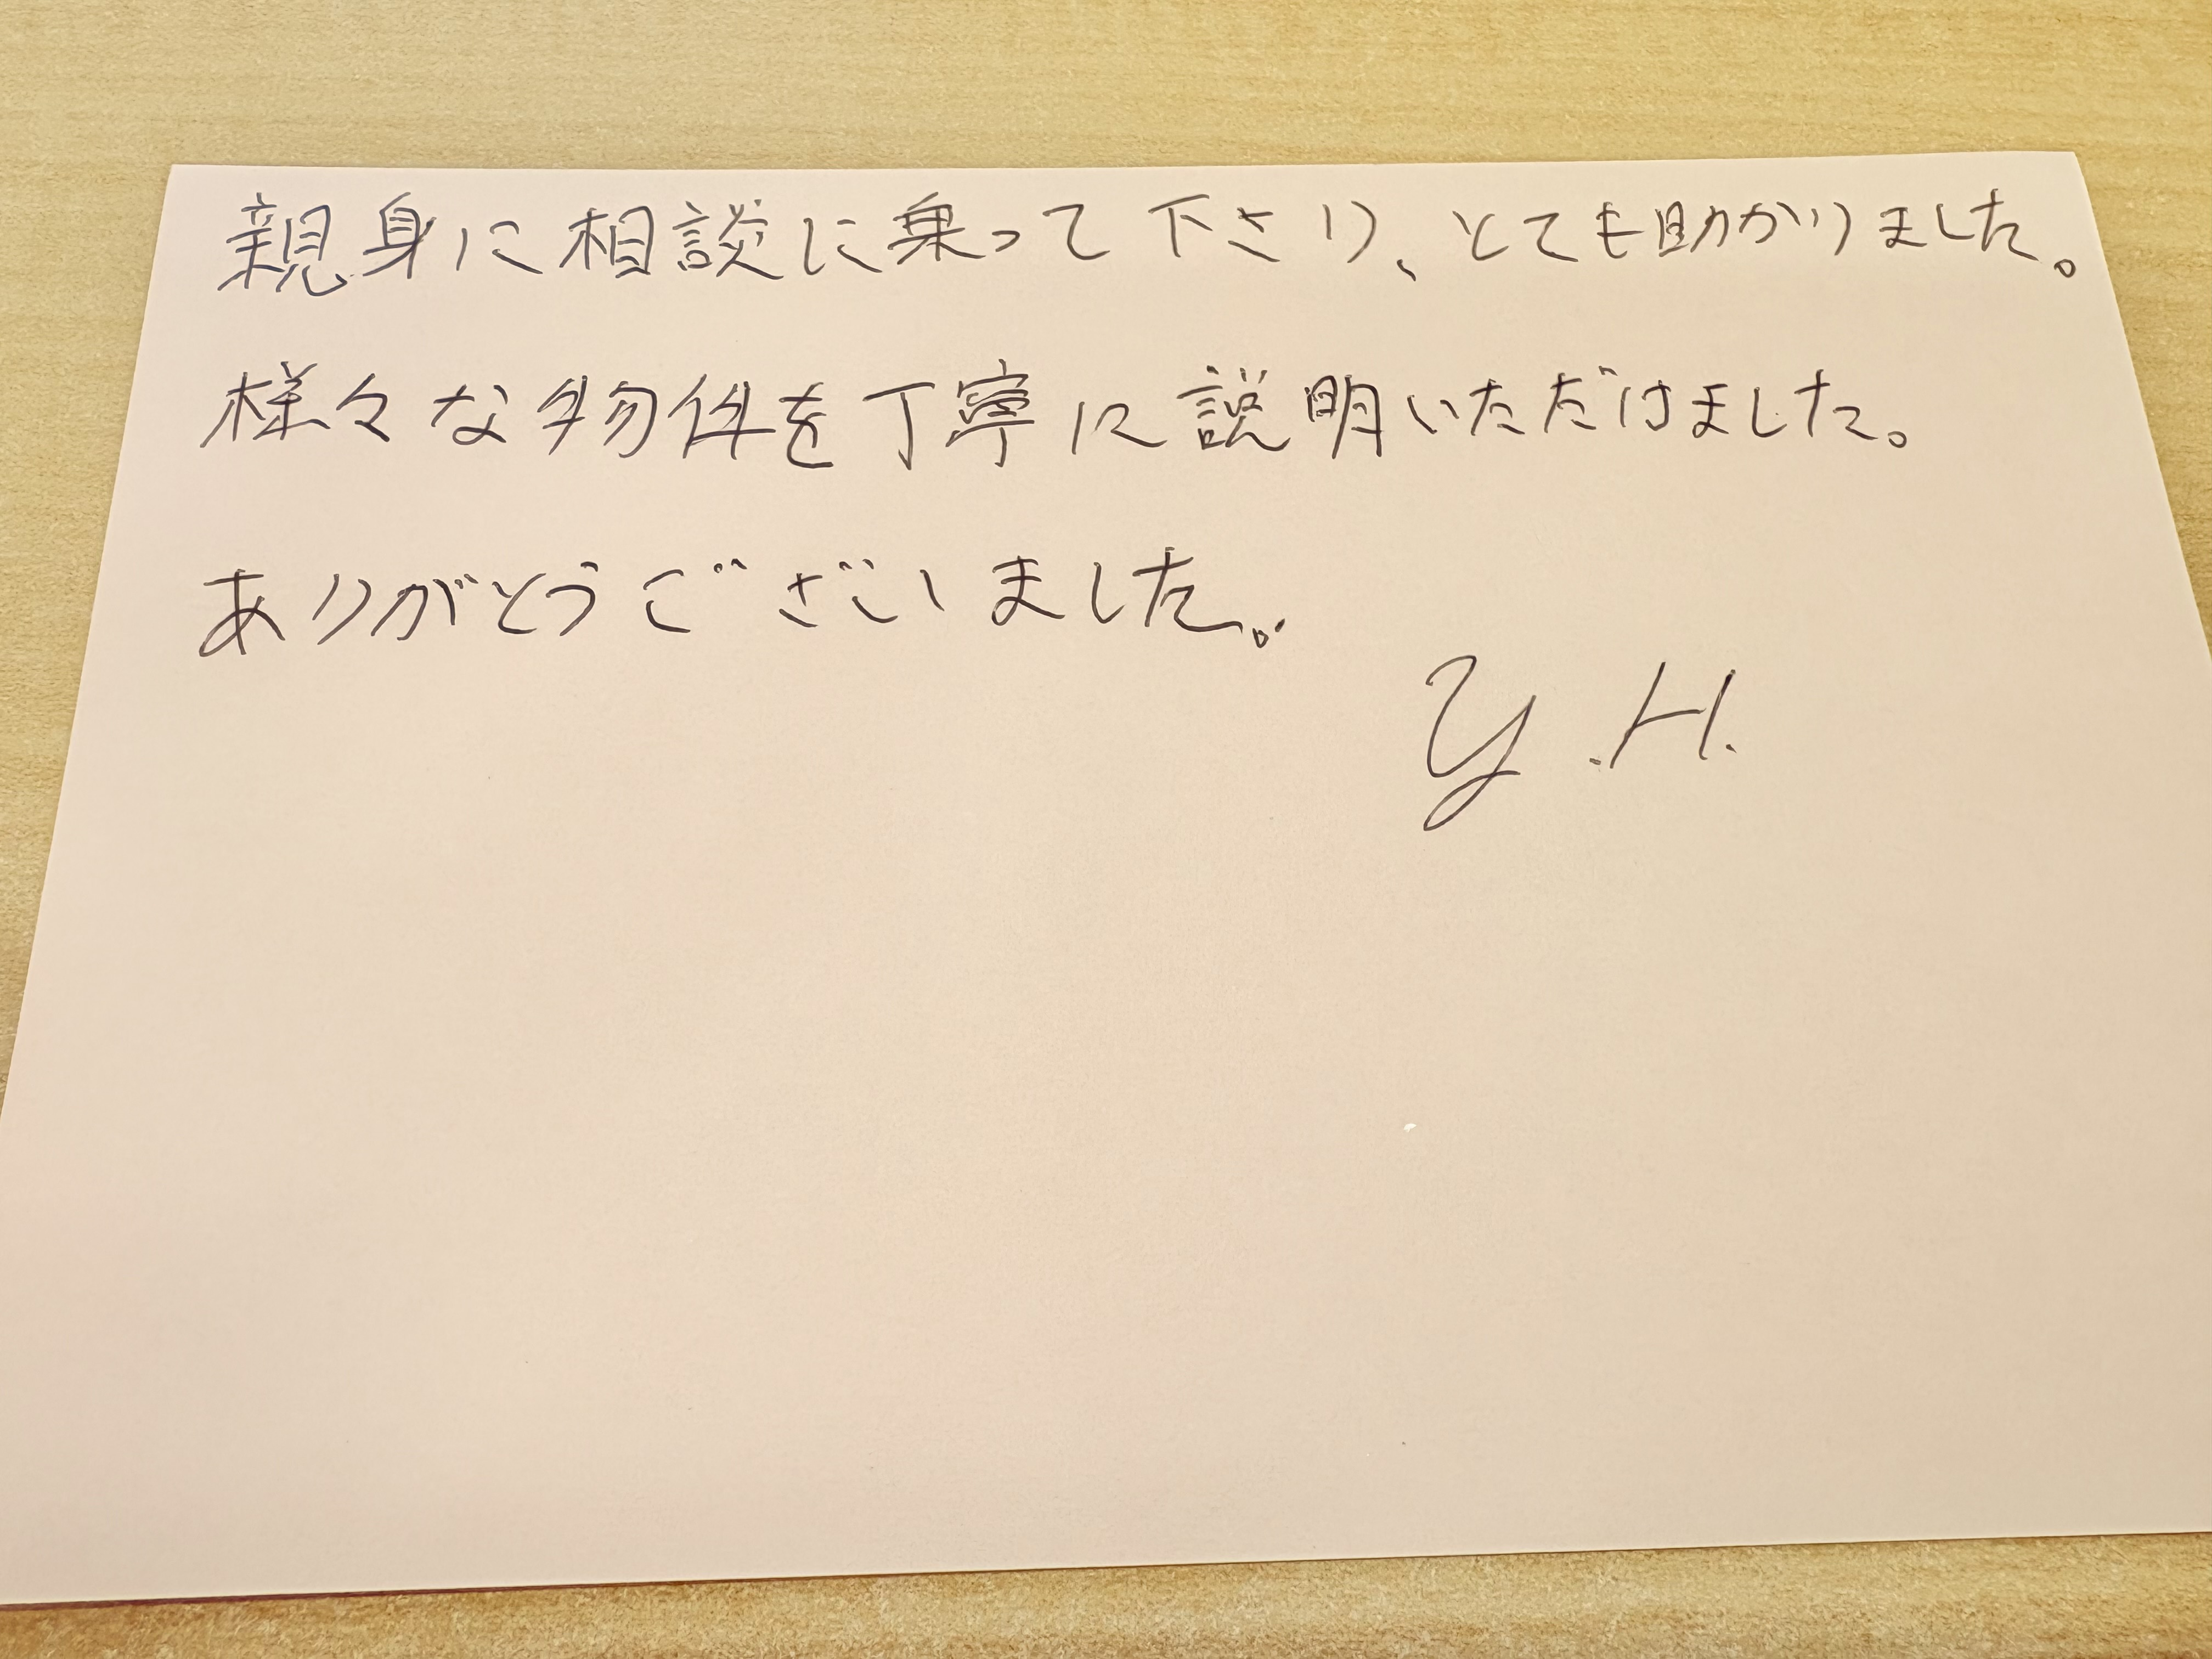 親身に相談に乗って下さり、とても助かりました。
様々な物件を丁寧に説明いただけました。
ありがとうございました。
Y.H.